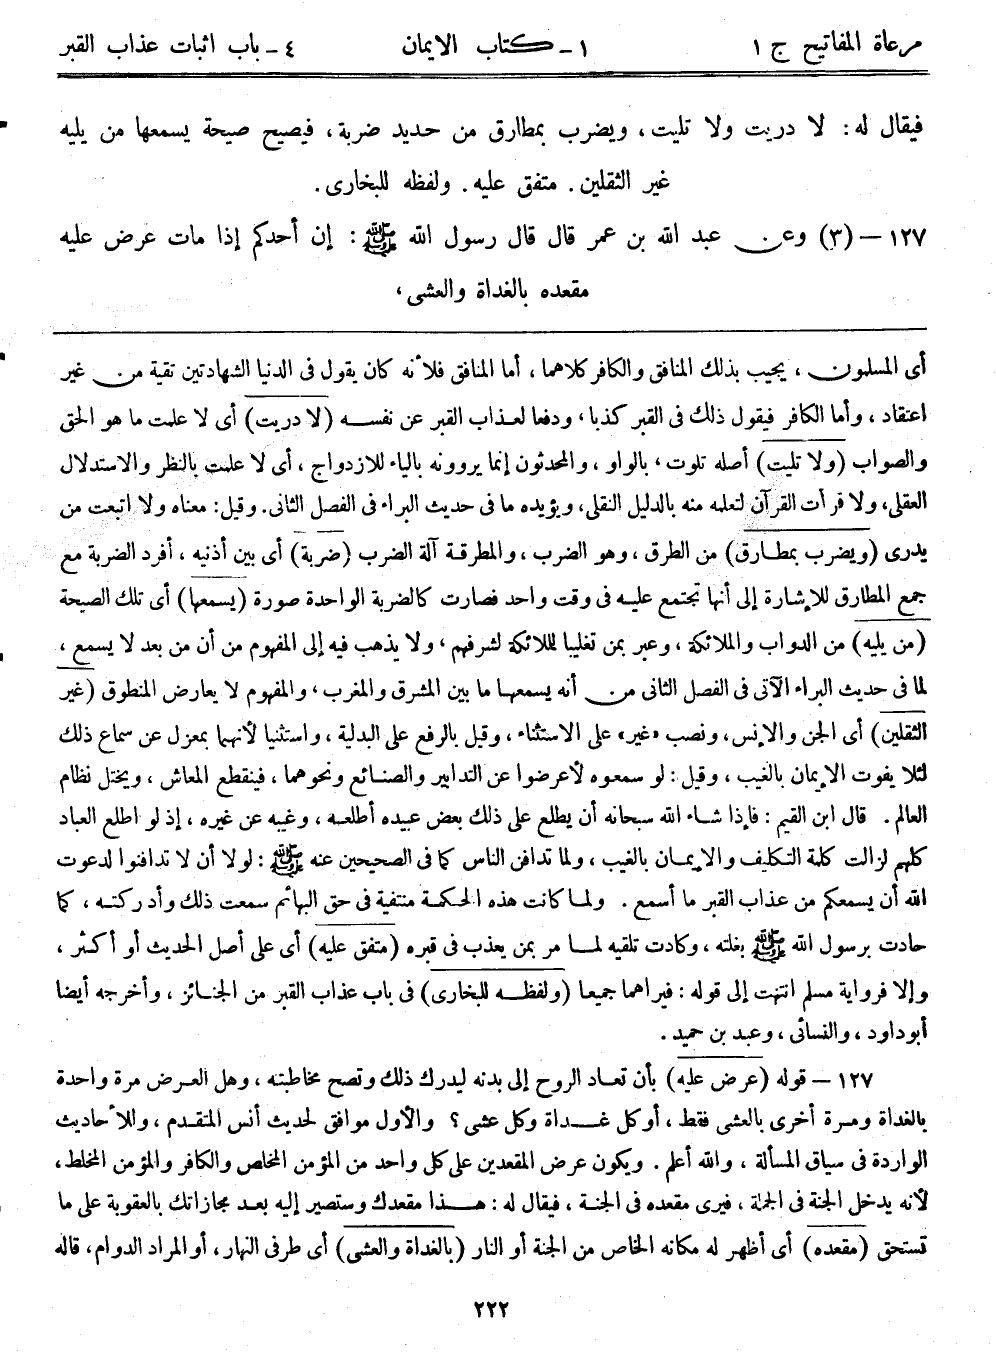 مرعاة المفاتيح ج ١ ١ - كتاب الايمان ٤ - باب اثبات عذاب القبر
فيقال له: لا دريت ولا تليت، ويضرب بمطارق من حديد ضربة، فيصيح صيحة يسمعها من يليه
غير الثقلين. متفق عليه. ولفظه للبخارى.
١٢٧ – (٣) وعن عبد الله بن عمر قال قال رسول الله ﷺ: إن أحدكم إذا مات عرض عليه
مقعده بالغداة والعشى،
أى المسلمون، يجيب بذلك المنافق والكافر كلاهما، أما المنافق فلأنه كان يقول فى الدنيا الشهادتين تقية من غير
اعتقاد، وأما الكافر فيقول ذلك فى القبر كذبا، ودفعا لعذاب القبر عن نفسه (لا دريت) أى لا علمت ما هو الحق
والصواب (ولا تليت) أصله تلوت، بالواو، والمحدثون إنما يروونه بالياء للازدواج، أى لا علمت بالنظر والاستدلال
العقلى، ولا قرأت القرآن لتعلمه منه بالدليل النقلى، ويؤيده ما فى حديث البراء فى الفصل الثانى. وقيل: معناه ولا اتبعت من
يدرى (ويضرب بمطارق) من الطرق، وهو الضرب، والمطرقة آلة الضرب (ضربة) أى بين أذنيه، أفرد الضربة مع
جمع المطارق للإشارة إلى أنها تجتمع عليه فى وقت واحد فصارت كالضربة الواحدة صورة (يسمعها) أى تلك الصيحة
(من يليه) من الدواب والملائكة، وعبر بمن تغليبا لللائكة لشرفهم، ولا يذهب فيه إلى المفهوم من أن من بعد لا يسمع،
لما فى حديث البراء الآتى فى الفصل الثانى من أنه يسمعها ما بين المشرق والمغرب، والمفهوم لا يعارض المنطوق (غير
الثقلين) أى الجن والإنس، ونصب «غير» على الاستثناء، وقيل بالرفع على البدلية، واستثنيا لأنهما بمعزل عن سماع ذلك
لئلا يفوت الإيمان بالغيب، وقيل: لو سمعوه لأعرضوا عن التدابير والصنائع ونحوهما، فينقطع المعاش، ويختل نظام
العالم. قال ابن القيم: فإذا شاء الله سبحانه أن يطلع على ذلك بعض عبيده أطلعه، وغيبه عن غيره، إذ لو اطلع العباد
كلهم لزالت كلمة التكليف والإيمان بالغيب، ولما تدافن الناس كما فى الصحيحين عنه ﷺ: لولا أن لا تدافنوا لدعوت
الله أن يسمعكم من عذاب القبر ما أسمع. ولما كانت هذه الحكمة منتفية فى حق البهائم سمعت ذلك وأدركته، كما
حادت برسول الله ﷺ بغلته، وكادت تلقيه لما مر بمن يعذب فى قبره (متفق عليه) أى على أصل الحديث أو أكثر،
وإلا فرواية مسلم انتهت إلى قوله: فيراهما جميعا (ولفظه للبخارى) فى باب عذاب القبر من الجنائز، وأخرجه أيضا
أبوداود، والنسائى، وعبد بن حميد.
١٢٧ – قوله (عرض عليه) بأن تعاد الروح إلى بدنه ليدرك ذلك وتصح مخاطبته، وهل العرض مرة واحدة
بالغداة ومرة أخرى بالعشى فقط، أو كل غداة وكل عشى؟ والأول موافق لحديث أنس المتقدم، وللأحاديث
الواردة فى سياق المسألة، والله أعلم. ويكون عرض المقعدين على كل واحد من المؤمن المخلص والكافر والمؤمن المخلط،
لأنه يدخل الجنة فى الجملة، فيرى مقعده فى الجنة، فيقال له: هذا مقعدك وستصير إليه بعد مجازاتك بالعقوبة على ما
تستحق (مقعده) أى أظهر له مكانه الخاص من الجنة أو النار (بالغداة والعشى) أى طرفى النهار، أو المراد الدوام، قاله
٢٢٢